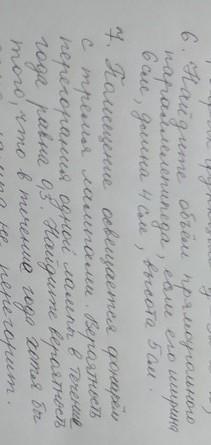 функцию
6. Найдите объём прямоугольного
параллелепипеда, если его ширина
6 см, длина 4 см, высота 5 см.
7. Помещение освещается фонарём
с тремя лампами. Вероятность
перегорания одной лампы в течение
года равна 0,3. Найдите вероятность
того, что в течение года хотя бы
лампа не перегорит.